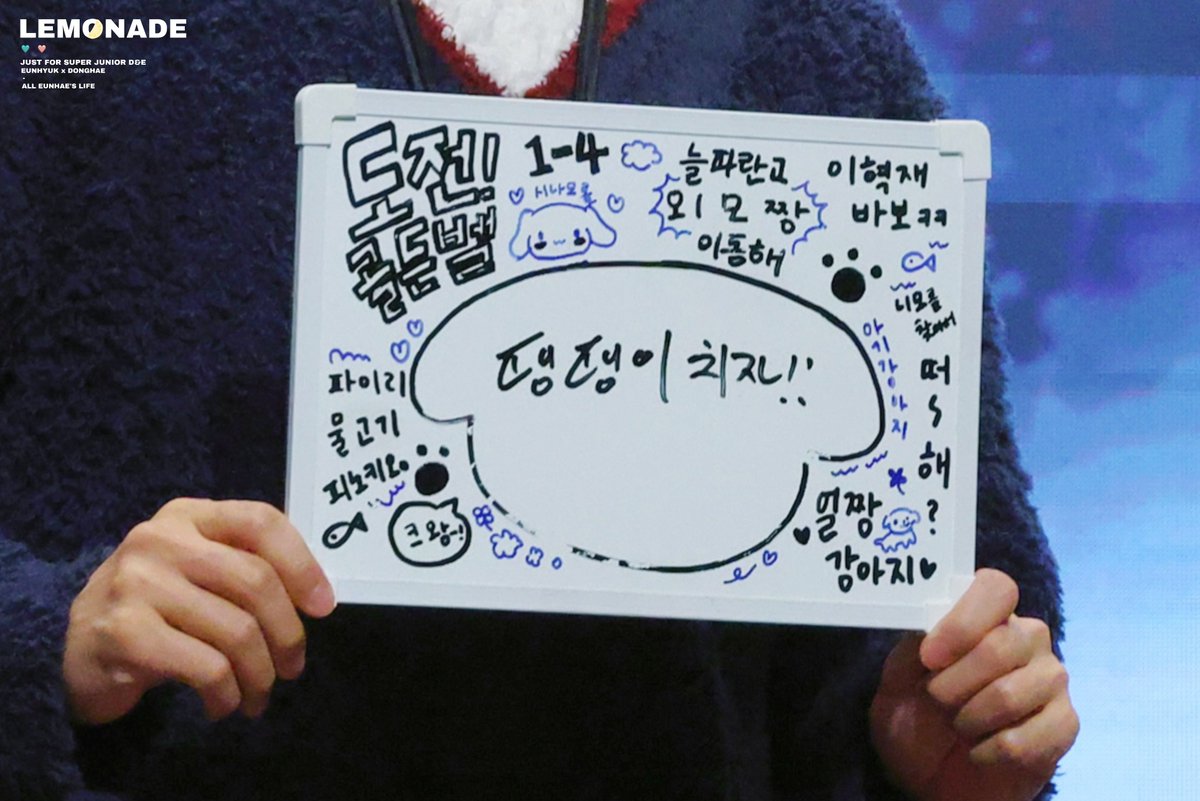 LEMONADE
JUST FOR SUPER JUNIOR D&E
EUNHYUK x DONGHAE
ALL EUNHAE'S LIFE
도전!
골든벨
1-4
시나모롤
늘파란고
외모짱
이동해
이혁재
바보ㅋㅋ
니모를
찾아서
아기강아지
떠~해?
땡땡이 치자!!
파이리
물고기
피노키오
크왕~!
얼짱
강아지